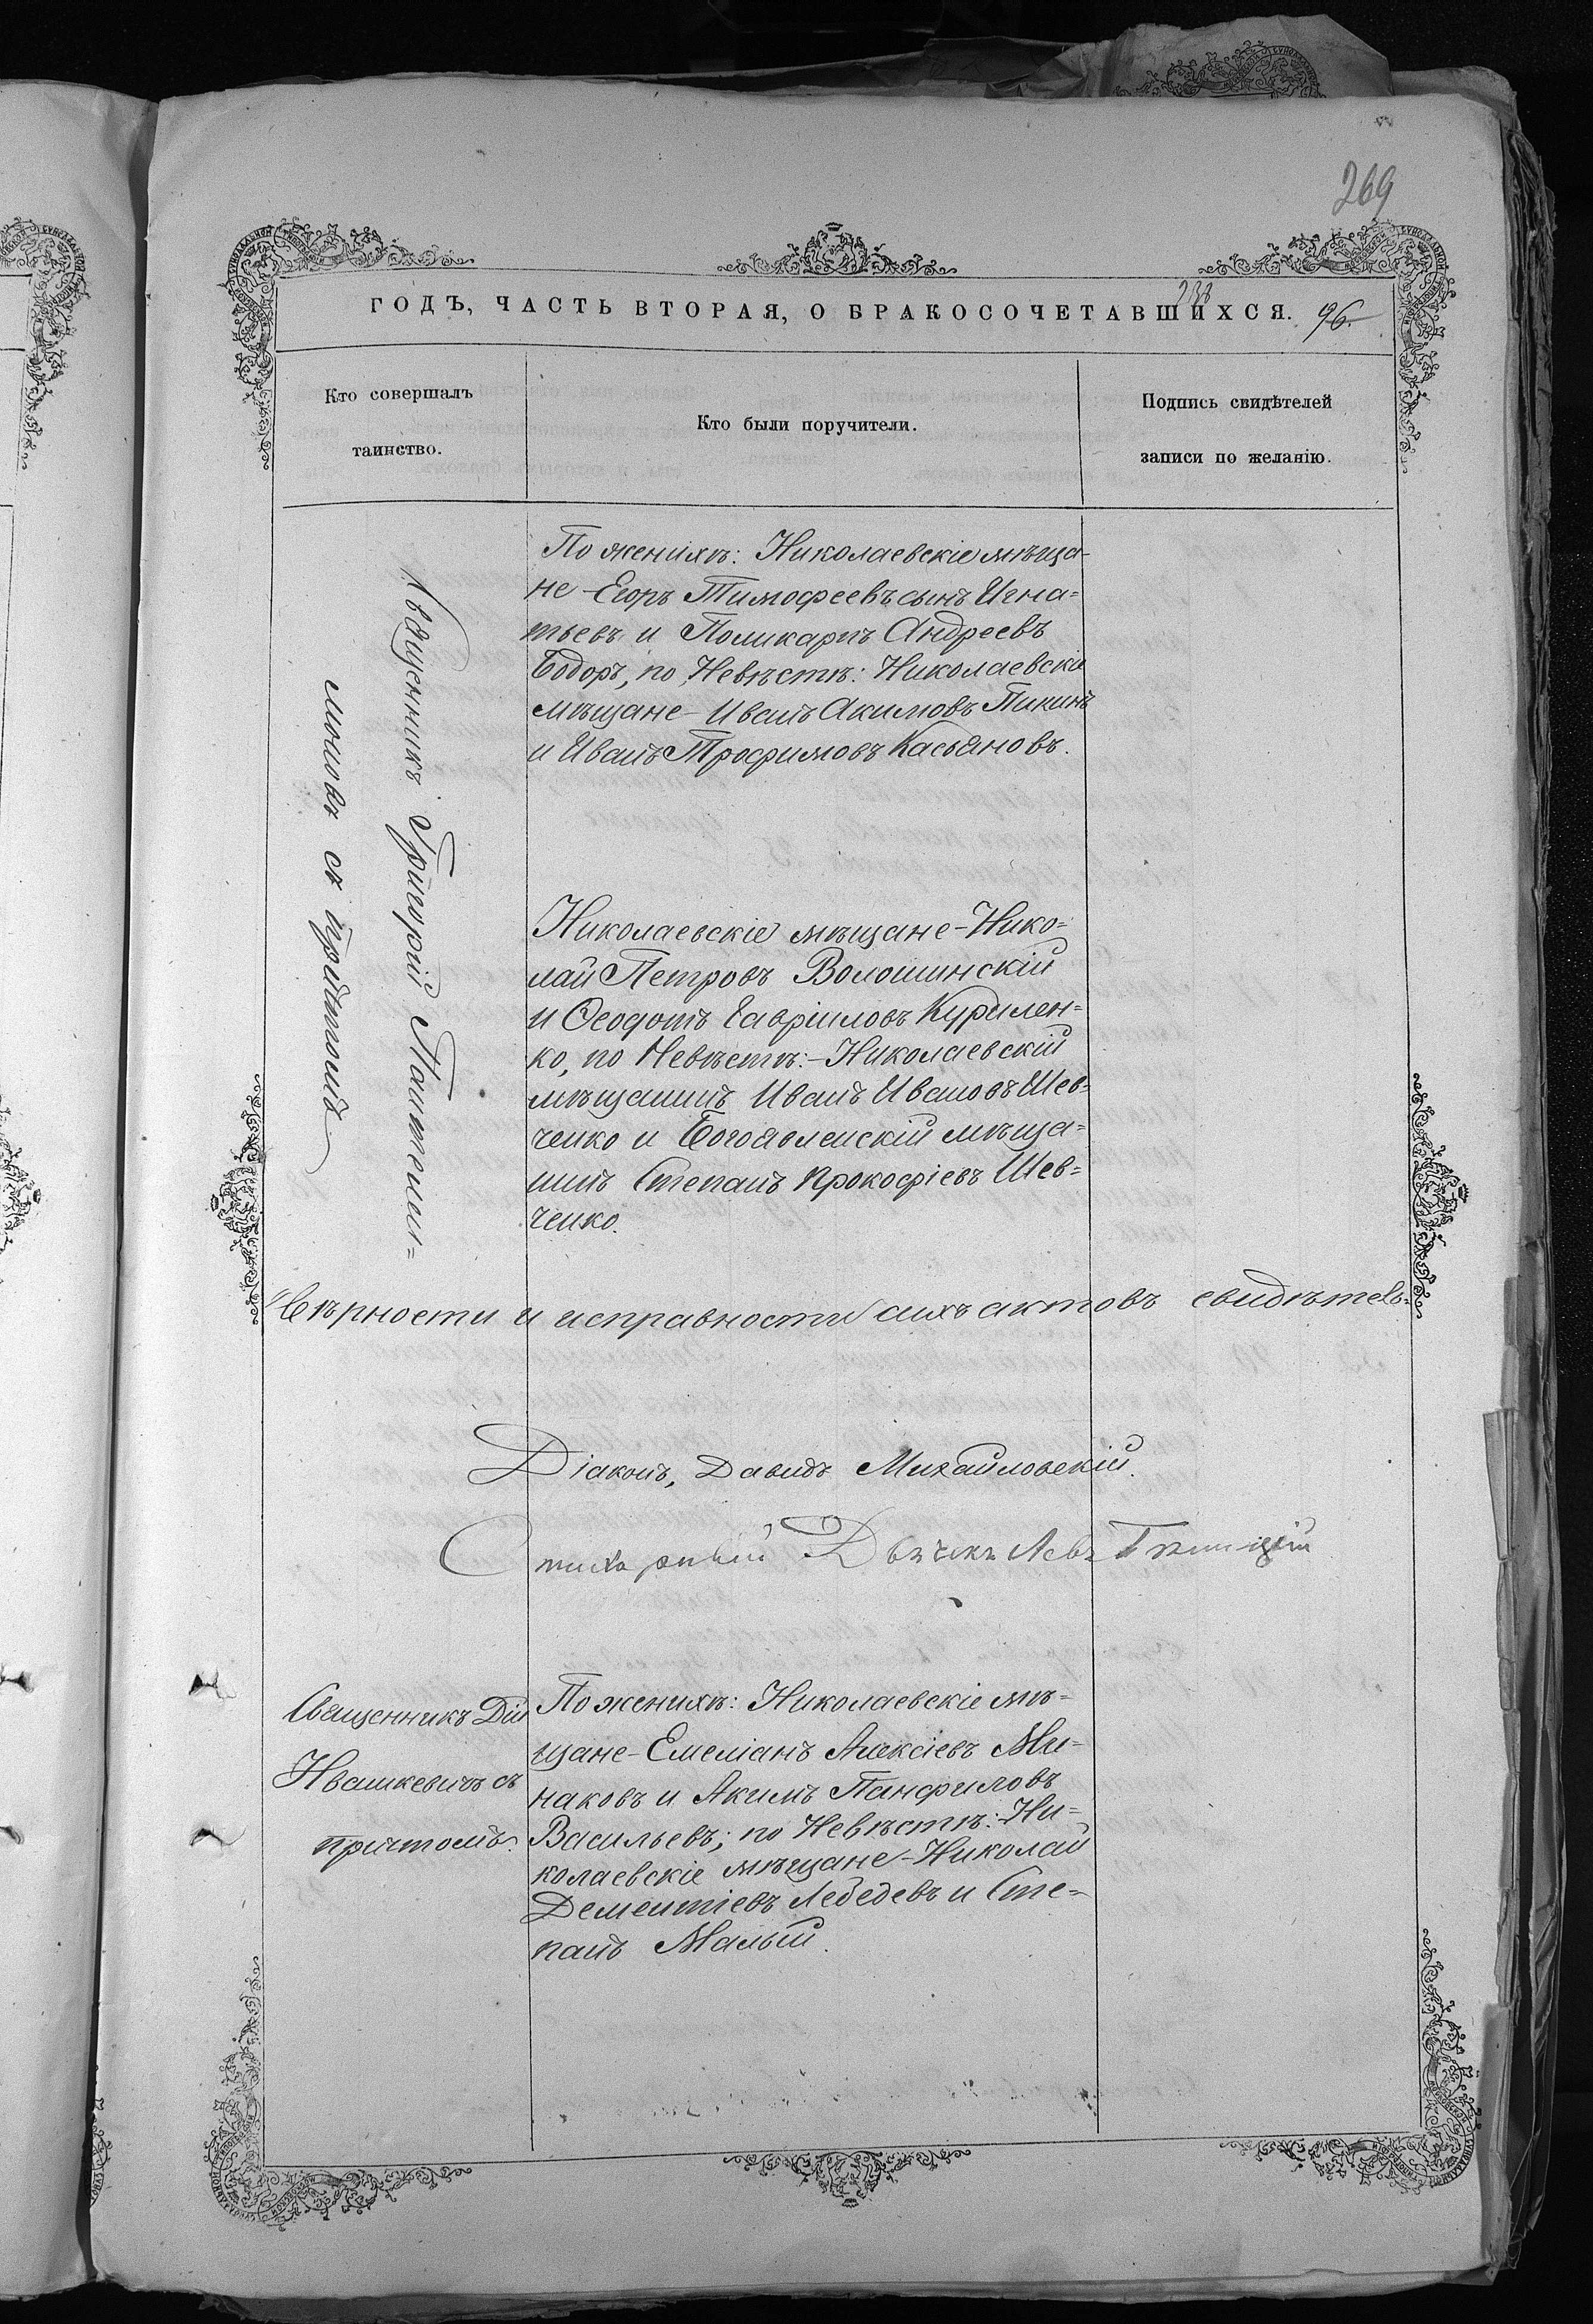 269
ГОДЪ, ЧАСТЬ ВТОРАЯ, О БРАКОСОЧЕТАВШИХСЯ. 96.
Кто совершалъ
таинство.
Кто были поручители.
Подпись свидѣтелей
записи по желанію.
Священникъ Григорій Пантели=
моновъ съ причтомъ
По женихѣ: Николаевскіе мѣща-
не Егоръ Тимофеевъ сынъ Игна=
тьевъ и Поликарпъ Андреевъ
Бодоръ, по Невѣстѣ: Николаевскіе
мѣщане Иванъ Акимовъ Пикинъ
и Иванъ Трофимовъ Касьяновъ.
Николаевскіе мѣщане-Нико=
лай Петровъ Волошинскій
и Ѳеодотъ Гавріиловъ Курилен=
ко, по Невѣстѣ:-Николаевскій
мѣщанинъ Иванъ Ивановъ Шев=
ченко и Богоявленскій мѣща=
нинъ Степанъ Прокофіевъ Шев=
ченко.
вѣрности и исправности сихъ актовъ свидѣтель=
Діаконъ, Давидъ Михайловскій.
Стихарный Дьячекъ Левъ
Священникъ Дій
Ивашкевичъ съ
причтомъ.
По женихѣ: Николаевскіе мѣ=
щане-Емеліанъ Алексіевъ Ми=
наковъ и Акимъ Панфиловъ
Васильевъ; по Невѣстѣ:-Ни=
колаевскіе мѣщане-Николай
Дементіевъ Лебедевъ и Сте=
панъ Малый.